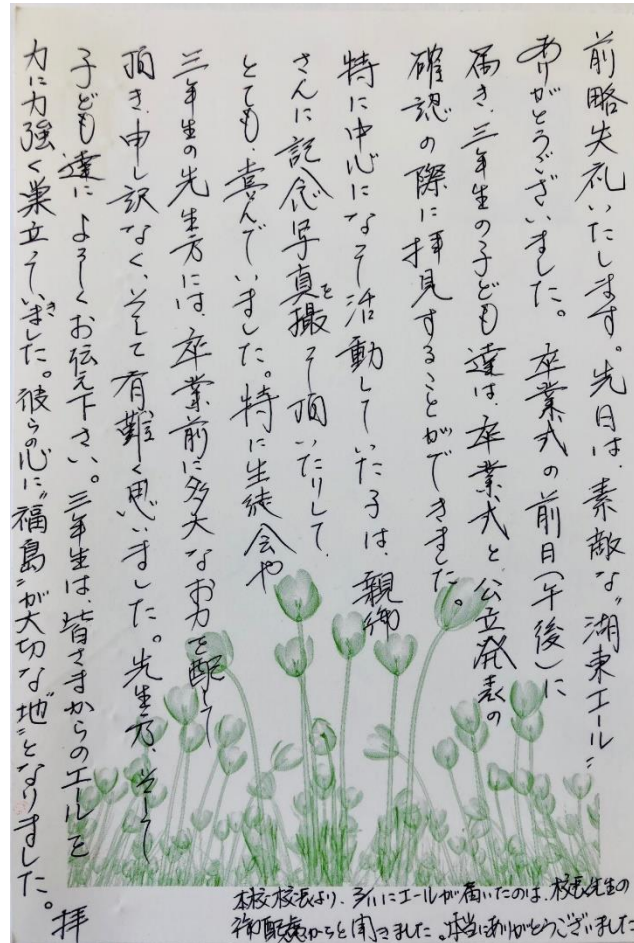 前略失礼いたします。先日は、素敵な"湖東エール"
ありがとうございました。卒業式の前日(午後)に
届き、三年生の子ども達は、卒業式と公立発表の
確認の際に拝見することができました。
特に中心になって活動していた子は、親御
さんに記念写真を撮って頂いたりして、
とても、喜んでいました。特に生徒会や
三年生の先生方には、卒業前に多大なお力を配して
頂き、申し訳なく、そして有難く思いました。先生方、そして
子ども達によろしくお伝え下さい。三年生は、皆さまからのエールを
力に力強く巣立っていきました。彼らの心に"福島"が大切な"地"となりました。
拝
本校校長より、3/11にエールが届いたのは、校長先生の
御配慮からと聞きました。本当にありがとうございました